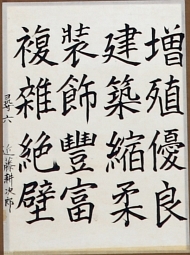 増殖優良
建築縮柔
装飾豊富
複雑絶壁
尋六 近藤耕次郎